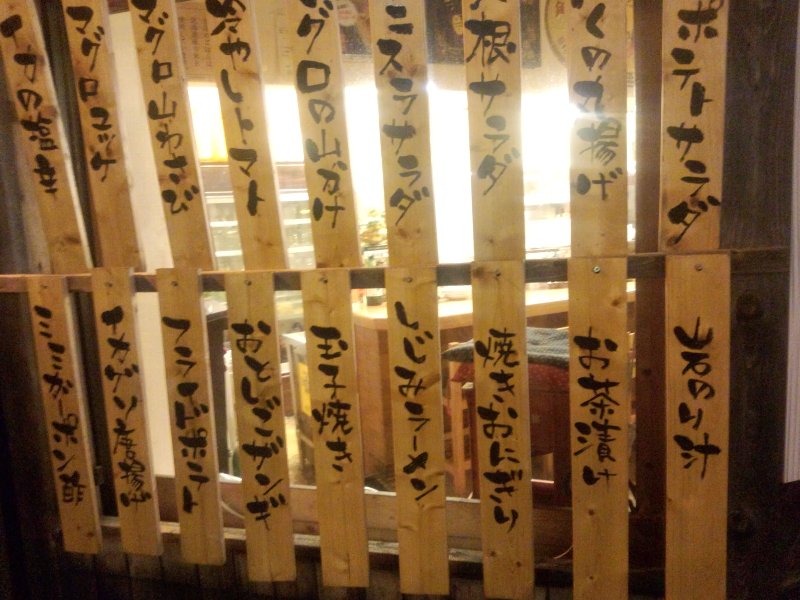 ポテトサラダ
くの丸揚げ
根サラダ
ニスラサラダ
マグロの山かけ
冷やしトマト
マグロ山わさび
マグロユッケ
イカの塩辛
岩のり汁
お茶漬け
焼きおにぎり
しじみラーメン
玉子焼き
おとしごザンギ
フライドポテト
イカゲソ唐揚げ
ミミガーポン酢